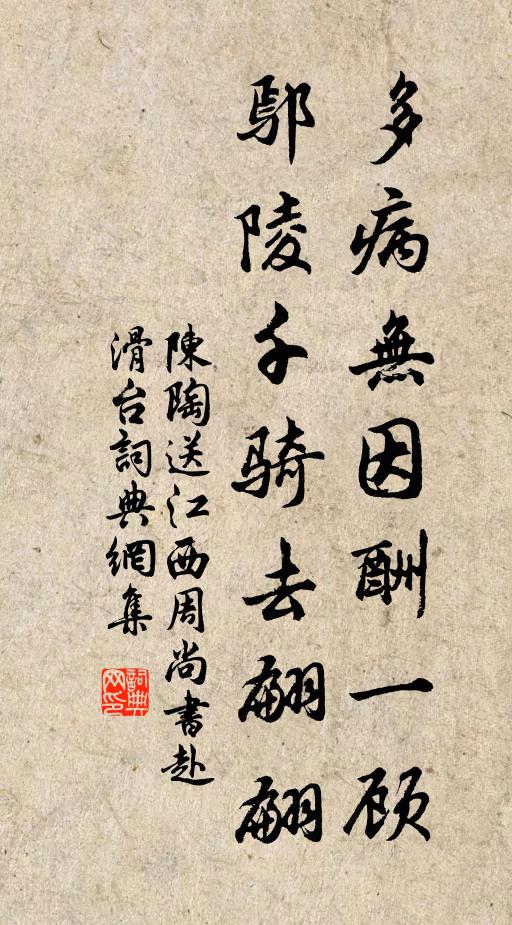 多病無因酬一顾
鄢陵千骑去翩翩
陳陶送江西周尚書赴
滑台詞典網集
詞典网印